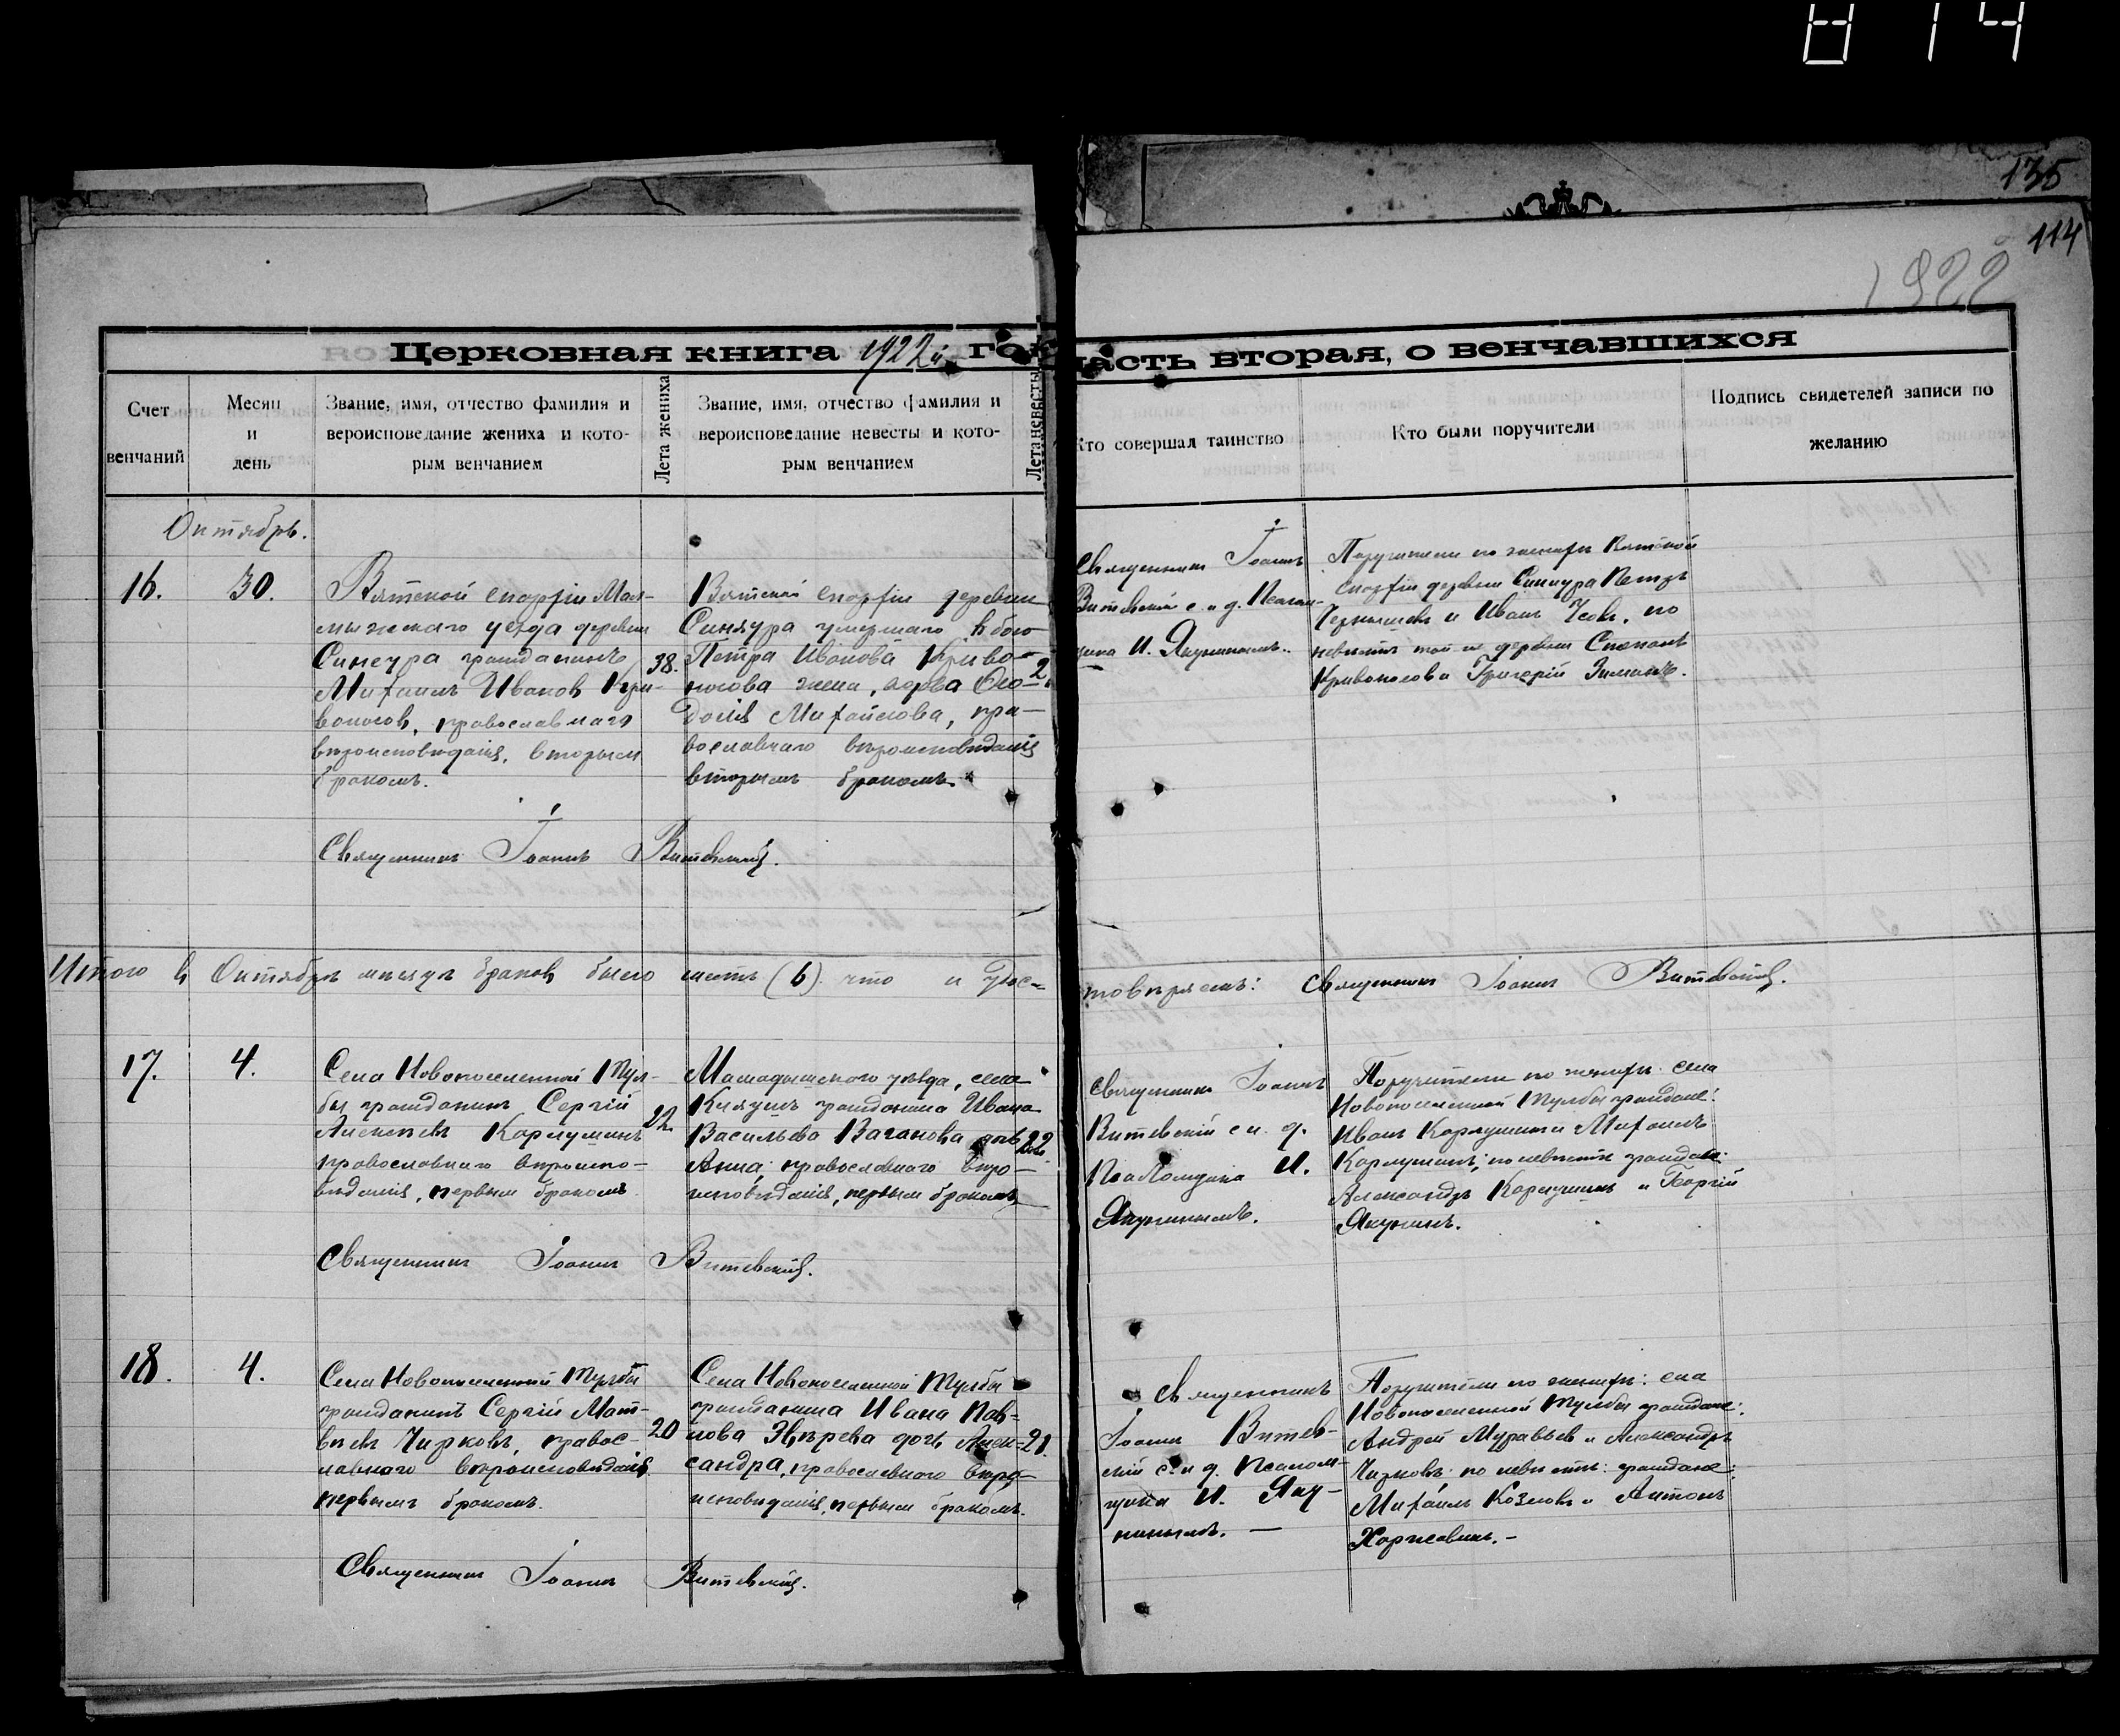 814
135
114
1922
Церковная книга 1922 й год
часть вторая, о венчавшихся
Счет венчаний
Месяц и день
Звание, имя, отчество фамилия и
вероисповедание жениха и кото-
рым венчанием
Лета жениха
Звание, имя, отчество фамилия и
вероисповедание невесты и кото-
рым венчанием
Лета невесты
Кто совершал таинство
Кто были поручители
Подпись свидетелей записи по
желанию
Октябрь.
16.
30.
Вятской епархіи Мал-
мыжскаго уезда деревни
Синеура гражданинъ
Михаилъ Ивановъ Кри-
воносовъ, православнаго
вѣроисповѣданія, вторым
бракомъ.
38.
Вятской епархіи деревни
Синяура умершаго
Петра Иванова Криво-
носова жена, вдова Θео-
досія Михайлова, пра-
вославнаго вѣроисповѣданія
вторымъ бракомъ.
2
Священникъ Іоаннъ
Витевскій с и. д. Псалом-
щика И. Якунинымъ.
Поручители по женихѣ Вятской
епархіи деревни Синяура Петръ
Чернышевъ и Иванъ, по
невѣстѣ той же деревни Степанъ
Кривоносов и Григорій Зиминъ.
Священникъ Іоаннъ Витевскій.
Итого в Октябрѣ мѣсяцѣ браков было шесть (6) что и удос-
товѣряемъ: Священникъ Іоаннъ Витевскій.
17.
4.
Села Новопоселенной Тул-
бы гражданинъ Сергій
Алексѣевъ Кармушинъ
православнаго вѣроиспо-
вѣданія, первым бракомъ.
22.
Мамадышскаго уѣзда, села
гражданина Ивана
Васильева Ваганова дочь
Анна, православнаго вѣро-
исповѣданія, первым бракомъ
22
Священникъ Іоаннъ
Витевскій с и. д.
Псаломщика И.
Якунинымъ.
Поручители по женихѣ: села
Новопоселенной Тулбы граждане:
Иванъ Кармушинъ и Михаилъ
Кармушинъ; по невѣстѣ граждане:
Александръ Кармушинъ и Георгій
Якунинъ.
Священникъ Іоаннъ Витевскій.
18.
4.
Села Новопоселенной Тулбы
гражданинъ Сергій Мат-
вѣевъ Чирковъ, правос-
лавнаго вѣроисповѣданія
первымъ бракомъ.
20
Села Новопоселенной Тулбы
гражданина Ивана Пав-
лова Звѣрева дочь Алек-
сандра, православнаго вѣро-
исповѣданія, первым бракомъ.
21.
Священникъ
Іоаннъ Витев-
скій с и д. псалом-
щика И. Яку-
нинымъ. —
Поручители по женихѣ: села
Новопоселенной Тулбы граждане:
Андрей Муравьев и Александръ
Чирковъ; по невѣстѣ: граждане:
Михаилъ Козловъ и Антонъ
Священникъ Іоаннъ Витевскій.